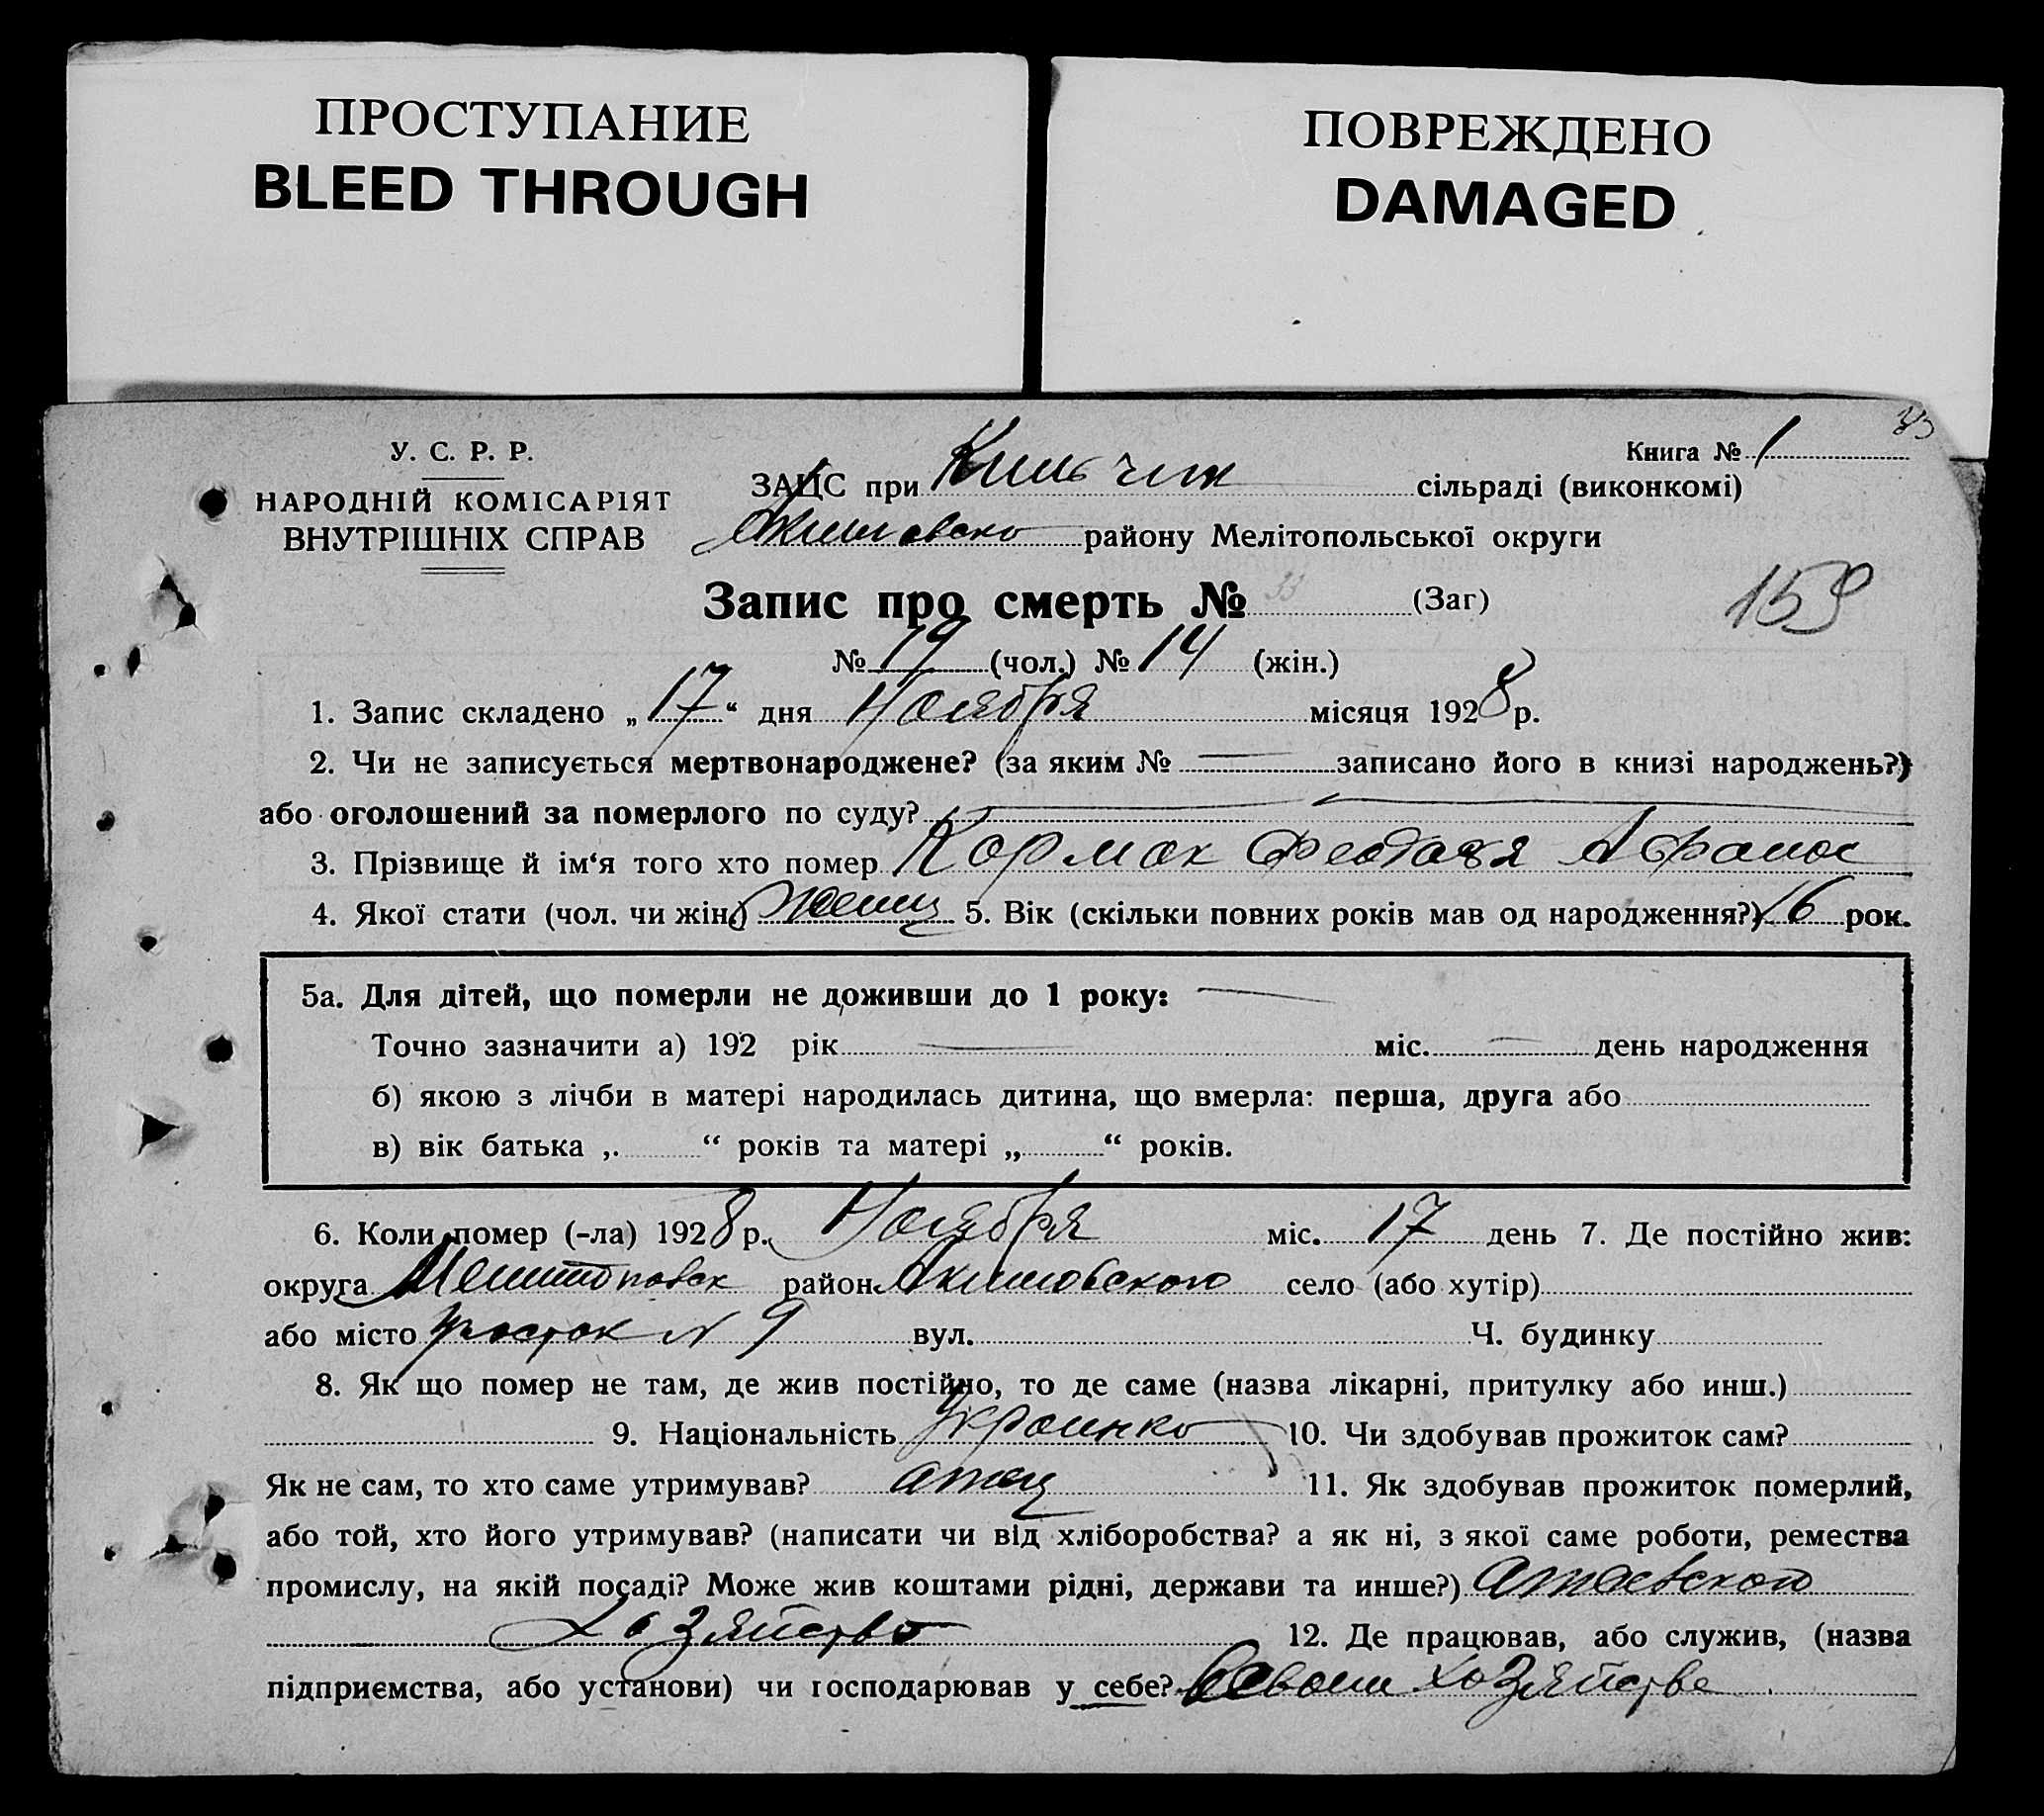 ПРОСТУПАНИЕ
BLEED THROUGH
ПОВРЕЖДЕНО
DAMAGED
У. С. Р. Р.
НАРОДНІЙ КОМІСАРІЯТ
ВНУТРІШНІХ СПРАВ
33
Книга № 1
ЗАЦС при сільраді (виконкомі)
району Мелітопольської округи
Запис про смерть № 33 (Заг)
159
№ 19 (чол.) № 14 (жін.)
1. Запис складено „17“ дня Ноября місяця 1928 р.
2. Чи не записується мертвонароджене? (за яким № — записано його в книзі народжень?)
або оголошений за померлого по суду? —
3. Прізвище й ім‘я того хто помер Кормак Феодося Афанас
4. Якої стати (чол. чи жін.) женщ 5. Вік (скільки повних років мав од народження?) 16 рок.
5а. Для дітей, що померли не доживши до 1 року: —
Точно зазначити а) 192 рік — міс. — день народження
б) якою з лічби в матері народилась дитина, що вмерла: перша, друга або
в) вік батька „ “ років та матері „ “ років.
6. Коли помер (-ла) 1928 р. Ноября міс. 17 день 7. Де постійно жив:
округа Мелитоповск район Акимовского село (або хутір)
або місто участок № 9 вул. Ч. будинку
8. Як що помер не там, де жив постійно, то де саме (назва лікарні, притулку або инш.)
9. Національність Украинко 10. Чи здобував прожиток сам?
Як не сам, то хто саме утримував? атец 11. Як здобував прожиток померлий,
або той, хто його утримував? (написати чи від хліборобства? а як ні, з якої саме роботи, ремества
промислу, на якій посаді? Може жив коштами рідні, держави та инше?)
хозяйство 12. Де працював, або служив, (назва
підприємства, або установи) чи господарював у себе? в своем хозяйстве